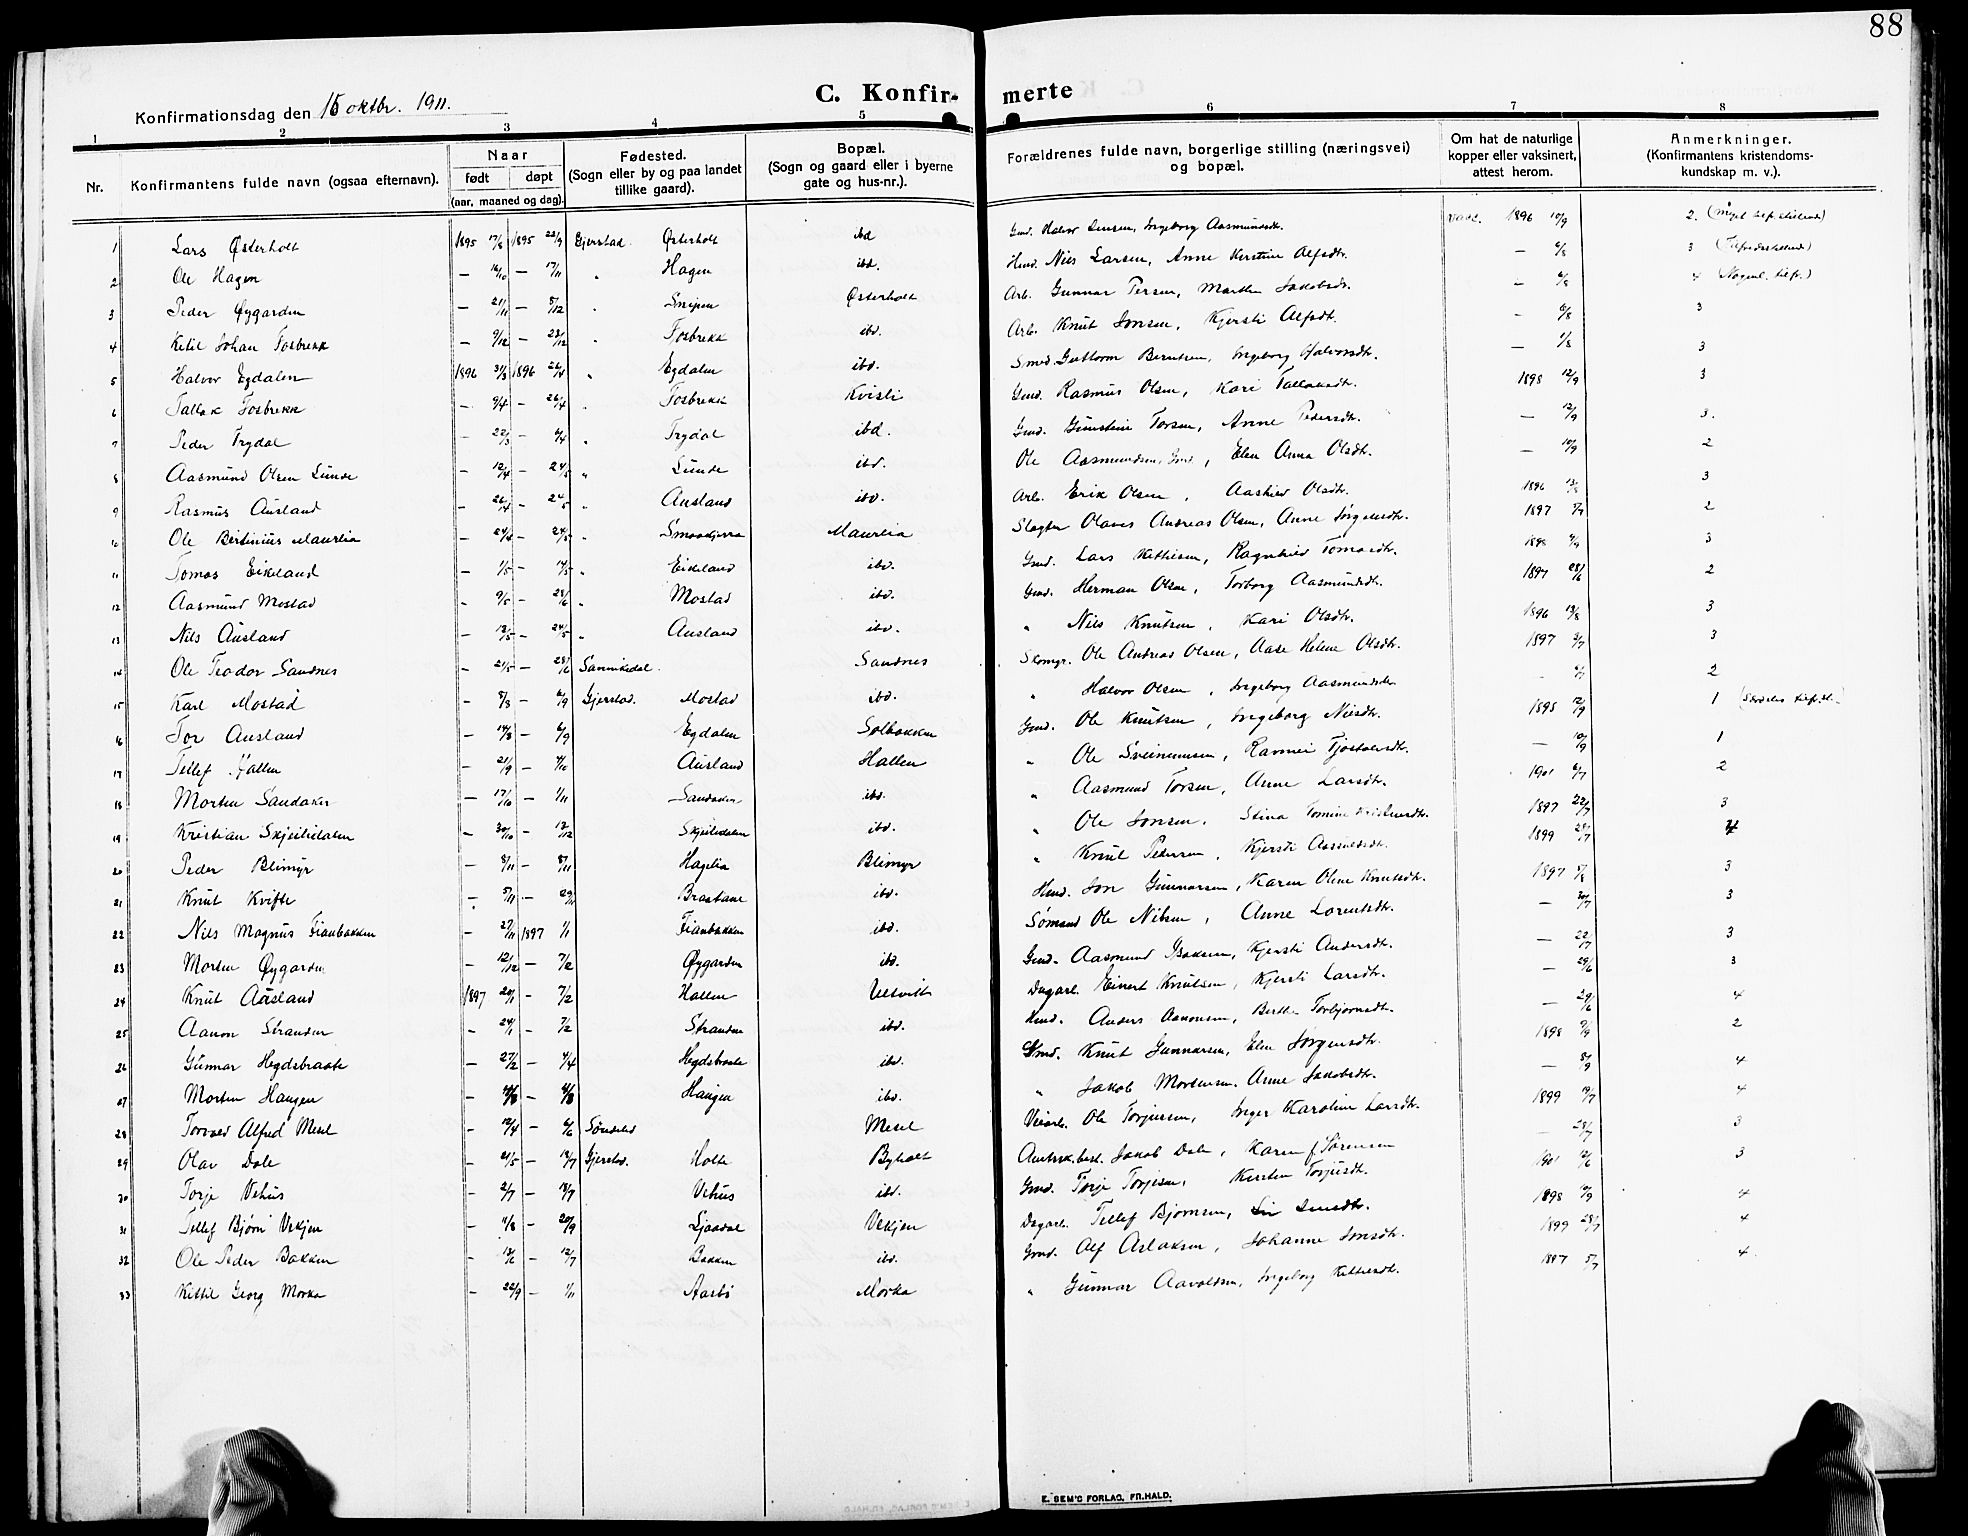 88
Konfirmationsdag den 15 oktbr. 1911.
C. Konfir- merte
1 2 3 4 5 6 7 8
Nr.
Konfirmantens fulde navn (ogsaa efternavn).
Naar
født døpt
(aar, maaned og dag).
Fødested.
(Sogn eller by og paa landet
tillike gaard).
Bopæl.
(Sogn og gaard eller i byerne
gate og hus-nr.).
Forældrenes fulde navn, borgerlige stilling (næringsvei)
og bopæl.
Om hat de naturlige
kopper eller vaksinert,
attest herom.
Anmerkninger.
(Konfirmantens kristendoms-
kundskap m. v.).
1 Lars Østerholt 1895 17/8 1895 22/9 Gjerstad. Østerholt ibd Gmd. Halvor Jensen, Ingeborg Aasmundsdtr. vacc. 1896 10/9 2
2 Ole Hagen — 16/10 — 17/11 " Hagen ibd. Hmd. Niels Larsen, Anne Kerstine Alfsdtr. — 6/8 3
3 Peder Øygarden — 21/11 — 8/12 " Snipen Østerholt Arb. Gunnar Persen, Marthe Jakobsdtr. — 6/8 4
4 Ketil Johan Fosbrekk — 9/12 — 23/12 " Fosbrekk ibd. Arb. Knut Jonsen, Kjersti Alfsdtr. — 6/8 3
5 Halvor Egdalen 1896 31/3 1896 26/4 " Egdalen ibd. Smed. Guttorm Berntsen, Ingeborg Halvorsdtr. — 1/8 3
6 Tallak Fosbrekk — 9/4 — 26/4 " Fosbrekk Kvisli Gmd. Rasmus Olsen, Kari Tallaksdtr. 1898 12/9 3
7 Peder Trydal — 22/3 — 6/4 " Trydal ibd. Gmd. Gunstein Torsen, Anne Pedersdtr. — 12/9 3.
8 Aasmund Olsen Lunde — 12/4 — 24/5 " Lunde ibd. Ole Aasmundsen, Gmd., Elen Anna Olsdtr. — 10/9 2
9 Rasmus Ausland — 26/4 — 24/5 " Ausland ibd. Arb. Erik Olsen, Aashild Olsdtr. 1896 13/8 3
10 Ole Bertinius Maurlia — 24/4 — 24/5 " Smaakjerra Maurlia Slagter Olaves Andreas Olsen, Anne Jørgensdtr. 1897 2
11 Tomas Eikeland — 1/5 — 17/5 " Eikeland ibd. Gmd. Lars Kettilsen, Ragnhild Tomasdtr. 1898 9/9 3
12 Aasmund Mostad - 9/5 — 28/6 " Mostad ibd. Gmd. Herman Olsen, Torborg Aasmundsdtr. 1897 28/6 2
13 Nils Ausland — 12/5 — 24/5 " Ausland ibd. " Nils Knutsen, Kari Olsdtr. 1896 13/8 3
14 Ole Teodor Sandnes — 21/5 — 28/6 Sannikedal. Sandnes Skomgr. Ole Andreas Olsen, Aase Helene Olsdtr. 1897 3
15 Karl Mostad — 8/8 — 6/9 Gjerstad. Mostad ibd. " Halvor Olsen, Ingeborg Aasmundsdtr - 2
16 Tor Ausland — 14/8 — 6/9 Egdalen Solbakken Gmd. Ole Knutsen, Ingeborg Nilsdtr. 1898 12/9 1
17 Tellef Hallen — 21/9 — 4/10 Ausland Hallen " Ole Sveinunsen, Ravnei Tjostolvsdtr. — 10/9 1
18 Morten Sandaker — 17/10 — 1/11 Sandaker ibd. " Aasmund Torsen, Anne Larsdtr. 1901 6/7 2
19 Kristian Skjeilidalen — 30/10 — 13/12 Skjeilidalen ibd. " Ole Jonsen, Stina Tomine Kristensdtr. 1897 22/7 3
20 Peder Blimyr — 8/11 — 8/11 Hagelia Blimyr " Knut Pedersen, Kjersti 1899 4
21 Knut Kvifte — 5/11 — 29/11 Braatane ibd. Hmd. Jon Gunnarsen, Karen Oline Knutsdtr. 1897 3
22 Nils Magnus Fianbakken — 27/11 1897 1/1 Fianbakken ibd. Sømand Ole Nilsen, Anne Lorentsdtr. — 20/7 3
23 Morten Øygarden — 12/12 — 7/2 Øygarden ibd. Gmd. Aasmund Isaksen, Kjersti Andersdtr. — 22/7 3
24 Knut Ausland 1897 20/1 — 7/2 Hallen Ulltveit Dagarb. Einert Knutsen, Kjersti Larsdtr. — 29/6 3
25 Aanon Stranden — 24/1 — 7/2 Stranden ibd. Hmd. Anders Aanonsen, Berthe Torbjørnsdtr. — 29/6 4
26 Gunnar Hegdsbraate — 27/2 — 4/4 Hegdsbraate ibd. Gmd. Knut Gunnarsen, Elen Jørgensdtr. 1898 9/9 2
27 Morten Haugen — — Haugen ibd. " Jakob Mortensen, Anne Jakobsdtr. — 8/9 4
28 Torvald Alfred Mesel — 12/4 — 6/6 Søndeled Mesel Veiarb. Ole Torjussen, Inger Karoline Larsdtr. 1899 4
29 Olav Dale — 21/5 — 18/7 Gjerstad. Holte Byholt Amtssk.best. Jakob Dale, Karen f. Sørensen — 23/7 3
30 Torje Vehus — 2/7 — 18/7 Vehus ibd. Gmd. Torje Torjesen, Kirsten Torjusdtr. 1901 12/6 3
31 Tellef Bjørn Vekjen — 11/8 — 20/9 Ljaadal Vekjen Dagarb. Tellef Bjørnsen, 1898 10/9 4
32 Ole Peder Bakken — 13/6 — 12/7 Bakken ibd. Gmd. Alf Aslaksen, Johanne Jonsdtr. 1899 28/7 4
33 Kittil Georg Morka — 22/9 — 1/11 Aasbø Morka " Gunnar Aavoldsen, Ingeborg Kittelsdtr. 1897 5/7 4
E. SEM'S FORLAG, FR.HALD.